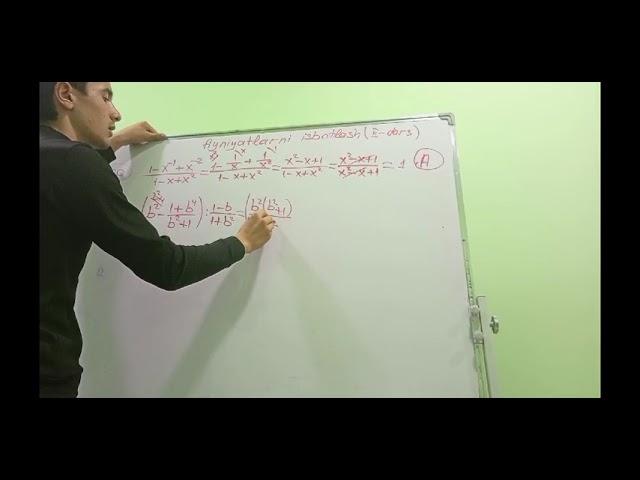 Ayniyatlarni isbotlash (II-dars)
(1-x⁻¹+x⁻²)/(1-x+x²) = (1-1/x+1/x²)/(1-x+x²) = (x²-x+1)/(1-x+x²) = (x²-x+1)/(x²-x+1) = 1 (A)
(b² - (1+b⁴)/(b²+1)) : (1-b)/(1+b²) = (b²(b²+1)